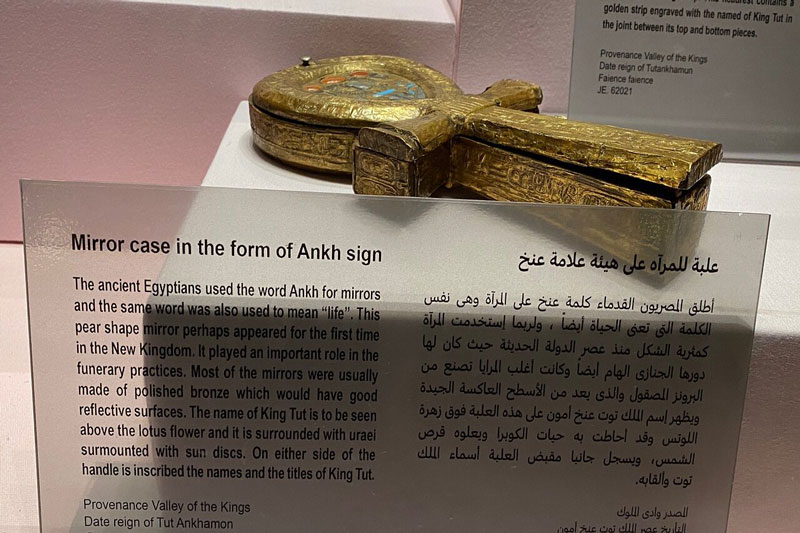 golden strip engraved with the named of King Tut in
the joint between its top and bottom pieces.
Provenance Valley of the Kings
Date reign of Tutankhamun
Faience faience
JE. 62021
Mirror case in the form of Ankh sign
The ancient Egyptians used the word Ankh for mirrors
and the same word was also used to mean “life”. This
pear shape mirror perhaps appeared for the first time
in the New Kingdom. It played an important role in the
funerary practices. Most of the mirrors were usually
made of polished bronze which would have good
reflective surfaces. The name of King Tut is to be seen
above the lotus flower and it is surrounded with uraei
surmounted with sun discs. On either side of the
handle is inscribed the names and the titles of King Tut.
Provenance Valley of the Kings
Date reign of Tut Ankhamon
علبة للمرآه على هيئة علامة عنخ
أطلق المصريون القدماء كلمة عنخ على المرآة وهى نفس
الكلمة التى تعنى الحياة أيضاً ، ولربما إستخدمت المرآة
كمثرية الشكل منذ عصر الدولة الحديثة حيث كان لها
دورها الجنازى الهام أيضاً وكانت أغلب المرايا تصنع من
البرونز المصقول والذى يعد من الأسطح العاكسة الجيدة
ويظهر إسم الملك توت عنخ أمون على هذه العلبة فوق زهرة
اللوتس وقد أحاطت به حيات الكوبرا ويعلوه قرص
الشمس، ويسجل جانبا مقبض العلبة أسماء الملك
توت وألقابه.
المصدر وادى الملوك
التأريخ عصر الملك توت عنخ أمون